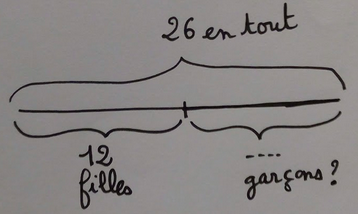 26 en tout
12
filles
----
garçons ?